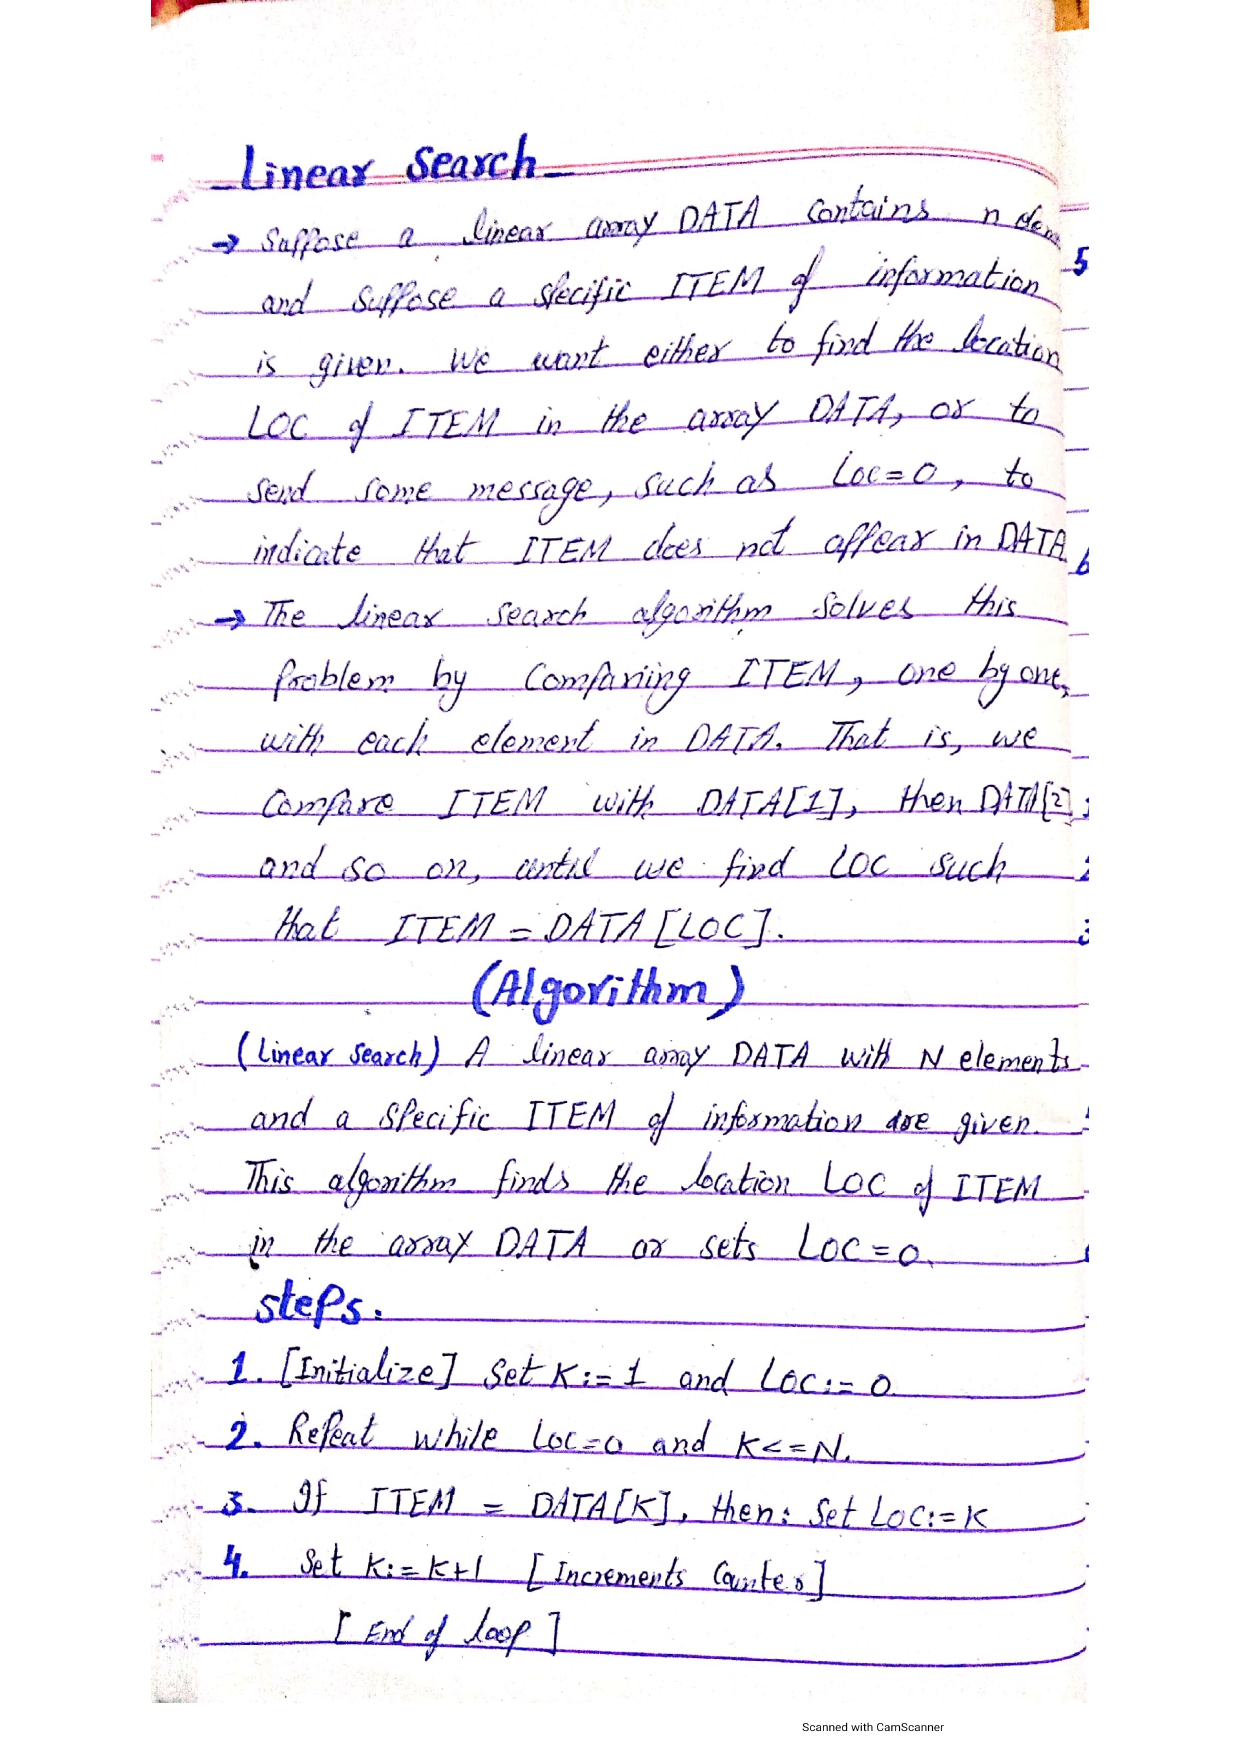 Linear Search
→ Suppose a linear array DATA contains n elem
and suppose a specific ITEM of information
is given. We want either to find the location
LOC of ITEM in the array DATA, or to
send some message, such as Loc=0, to
indicate that ITEM does not appear in DATA
→ The linear search algorithm solves this
problem by Compariing ITEM, one by one,
with each element in DATA. That is, we
Compare ITEM with DATA[1], then DATA[2]
and so on, until we find LOC such
that ITEM = DATA [LOC].
(Algorithm)
(Linear Search) A linear array DATA with N elements
and a specific ITEM of information are given.
This algorithm finds the location LOC of ITEM
in the array DATA or sets LOC=0.
Steps.
1. [Initialize] Set K:=1 and LOC:=0
2. Repeat while Loc=0 and K<=N.
3. If ITEM = DATA[K], then: Set LOC:=K
4. Set K:=K+1 [Increments Counter]
[End of loop]
Scanned with CamScanner